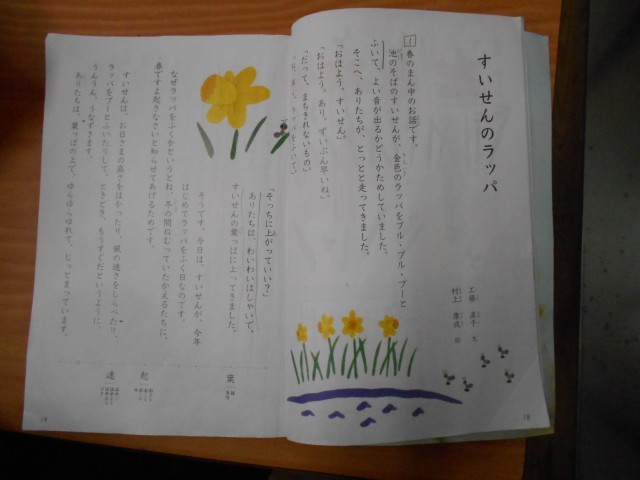 すいせんのラッパ
工藤 直子 文
村上 康成 絵
1 春のまん中のお話です。
池のそばのすいせんが、金色のラッパをプル・プル・プーと
ふいて、よい音が出るかどうかためしていました。
そこへ、ありたちが、とっとと走ってきました。
「おはよう、すいせん。」
「おはよう、あり。ずいぶん早いね。」
「だって、まちきれないもの。」
18
「そっちに上がっていい？」
ありたちは、わいわいはしゃいで、
すいせんの葉っぱに上ってきました。
そうです。今日は、すいせんが、今年
はじめてラッパをふく日なのです。
なぜラッパをふくかというとね、冬の間ねむっていたかえるたちに、
春ですよ起きなさいと知らせてあげるためです。
すいせんは、お日さまの高さをはかったり、風の速さをしらべたり、
ラッパをプーとふいたりして、ときどき、もうすぐだというように、
うんうん、うなずきます。
ありたちは、葉っぱの上で、ゆらゆらゆれて、じっとまっています。
葉
起
速